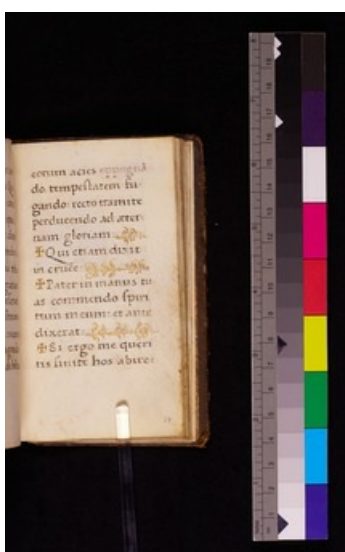 eorum acies expugnā
do: tempestatem fu-
gando: recto tramite
perducendo ad æter-
nam gloriam.
✠ Qui etiam dixit
in cruce.
✠ Pater in manus tu
as commendo spiri
tum meum: et ante
dixerat.
✠ Si ergo me queri
tis sinite hos abire: